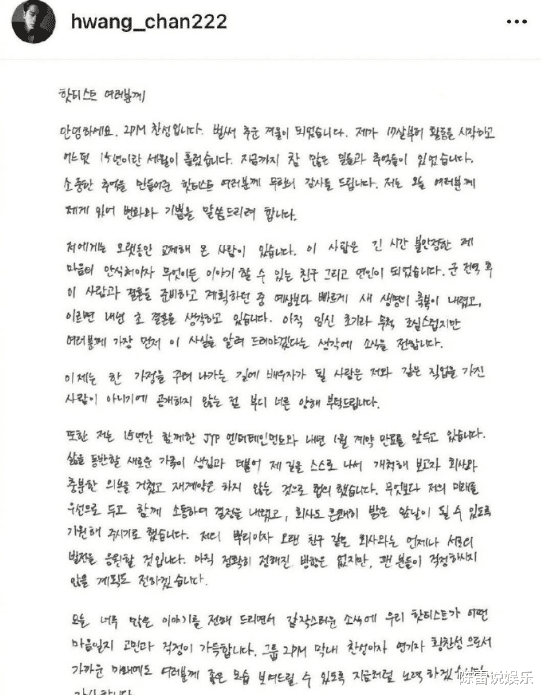 hwang_chan222
핫티스트 여러분께
안녕하세요. 2PM 찬성입니다. 벌써 추운 겨울이 되었습니다. 제가 17살부터 활동을 시작하고
어느덧 15년이란 세월이 흘렀습니다. 지금까지 참 많은 일들과 추억들이 있었습니다.
소중한 추억을 만들어준 핫티스트 여러분께 무한의 감사를 드립니다. 저는 오늘 여러분께
제게 있어 변화와 기쁨을 말씀드리려 합니다.
저에게는 오랫동안 교제해 온 사람이 있습니다. 이 사람은 긴 시간 불안정한 제
마음의 안식처이자 무엇이든 이야기 할 수 있는 친구 그리고 연인이 되었습니다. 군 전역 후
이 사람과 결혼을 준비하고 계획하던 중 예상보다 빠르게 새 생명의 축복이 내렸고,
이르면 내년 초 결혼을 생각하고 있습니다. 아직 임신 초기라 무척 조심스럽지만
여러분께 가장 먼저 이 사실을 알려 드려야겠다는 생각에 소식을 전합니다.
이제는 한 가정을 꾸려 나가는 길에 배우자가 될 사람은 저와 같은 직업을 가진
사람이 아니기에 공개하지 않는 점 부디 너른 양해 부탁드립니다.
또한 저는 15년간 함께한 JYP 엔터테인먼트와 내년 1월 계약 만료를 앞두고 있습니다.
삶을 동반할 새로운 가족이 생김과 더불어 제 길을 스스로 나서 개척해 보고자 회사와
충분한 의논을 거쳤고 재계약은 하지 않는 것으로 협의 했습니다. 무엇보다 저의 미래를
우선으로 두고 함께 소통하여 결정을 내렸고, 회사도 흔쾌히 밝은 앞날이 될 수 있도록
기원해 주시기로 했습니다. 저의 뿌리이자 오랜 친구 같은 회사와는 언제나 서로의
발전을 응원할 것입니다. 아직 정확히 정해진 방향은 없지만, 팬 분들이 걱정하시지
않을 계획도 전하겠습니다.
오늘 너무 많은 이야기를 전해 드리면서 갑작스러운 소식에 우리 핫티스트가 어떤
마음일지 고민과 걱정이 가득합니다. 그룹 2PM 막내 찬성이자 연기자 황찬성으로서
가까운 미래에도 여러분께 좋은 모습 보여드릴 수 있도록 지금처럼 노력 하겠습니다
감사합니다
陈雷说娱乐